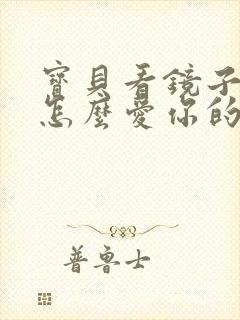 寶貝看鏡子
怎麼愛你的
普魯士